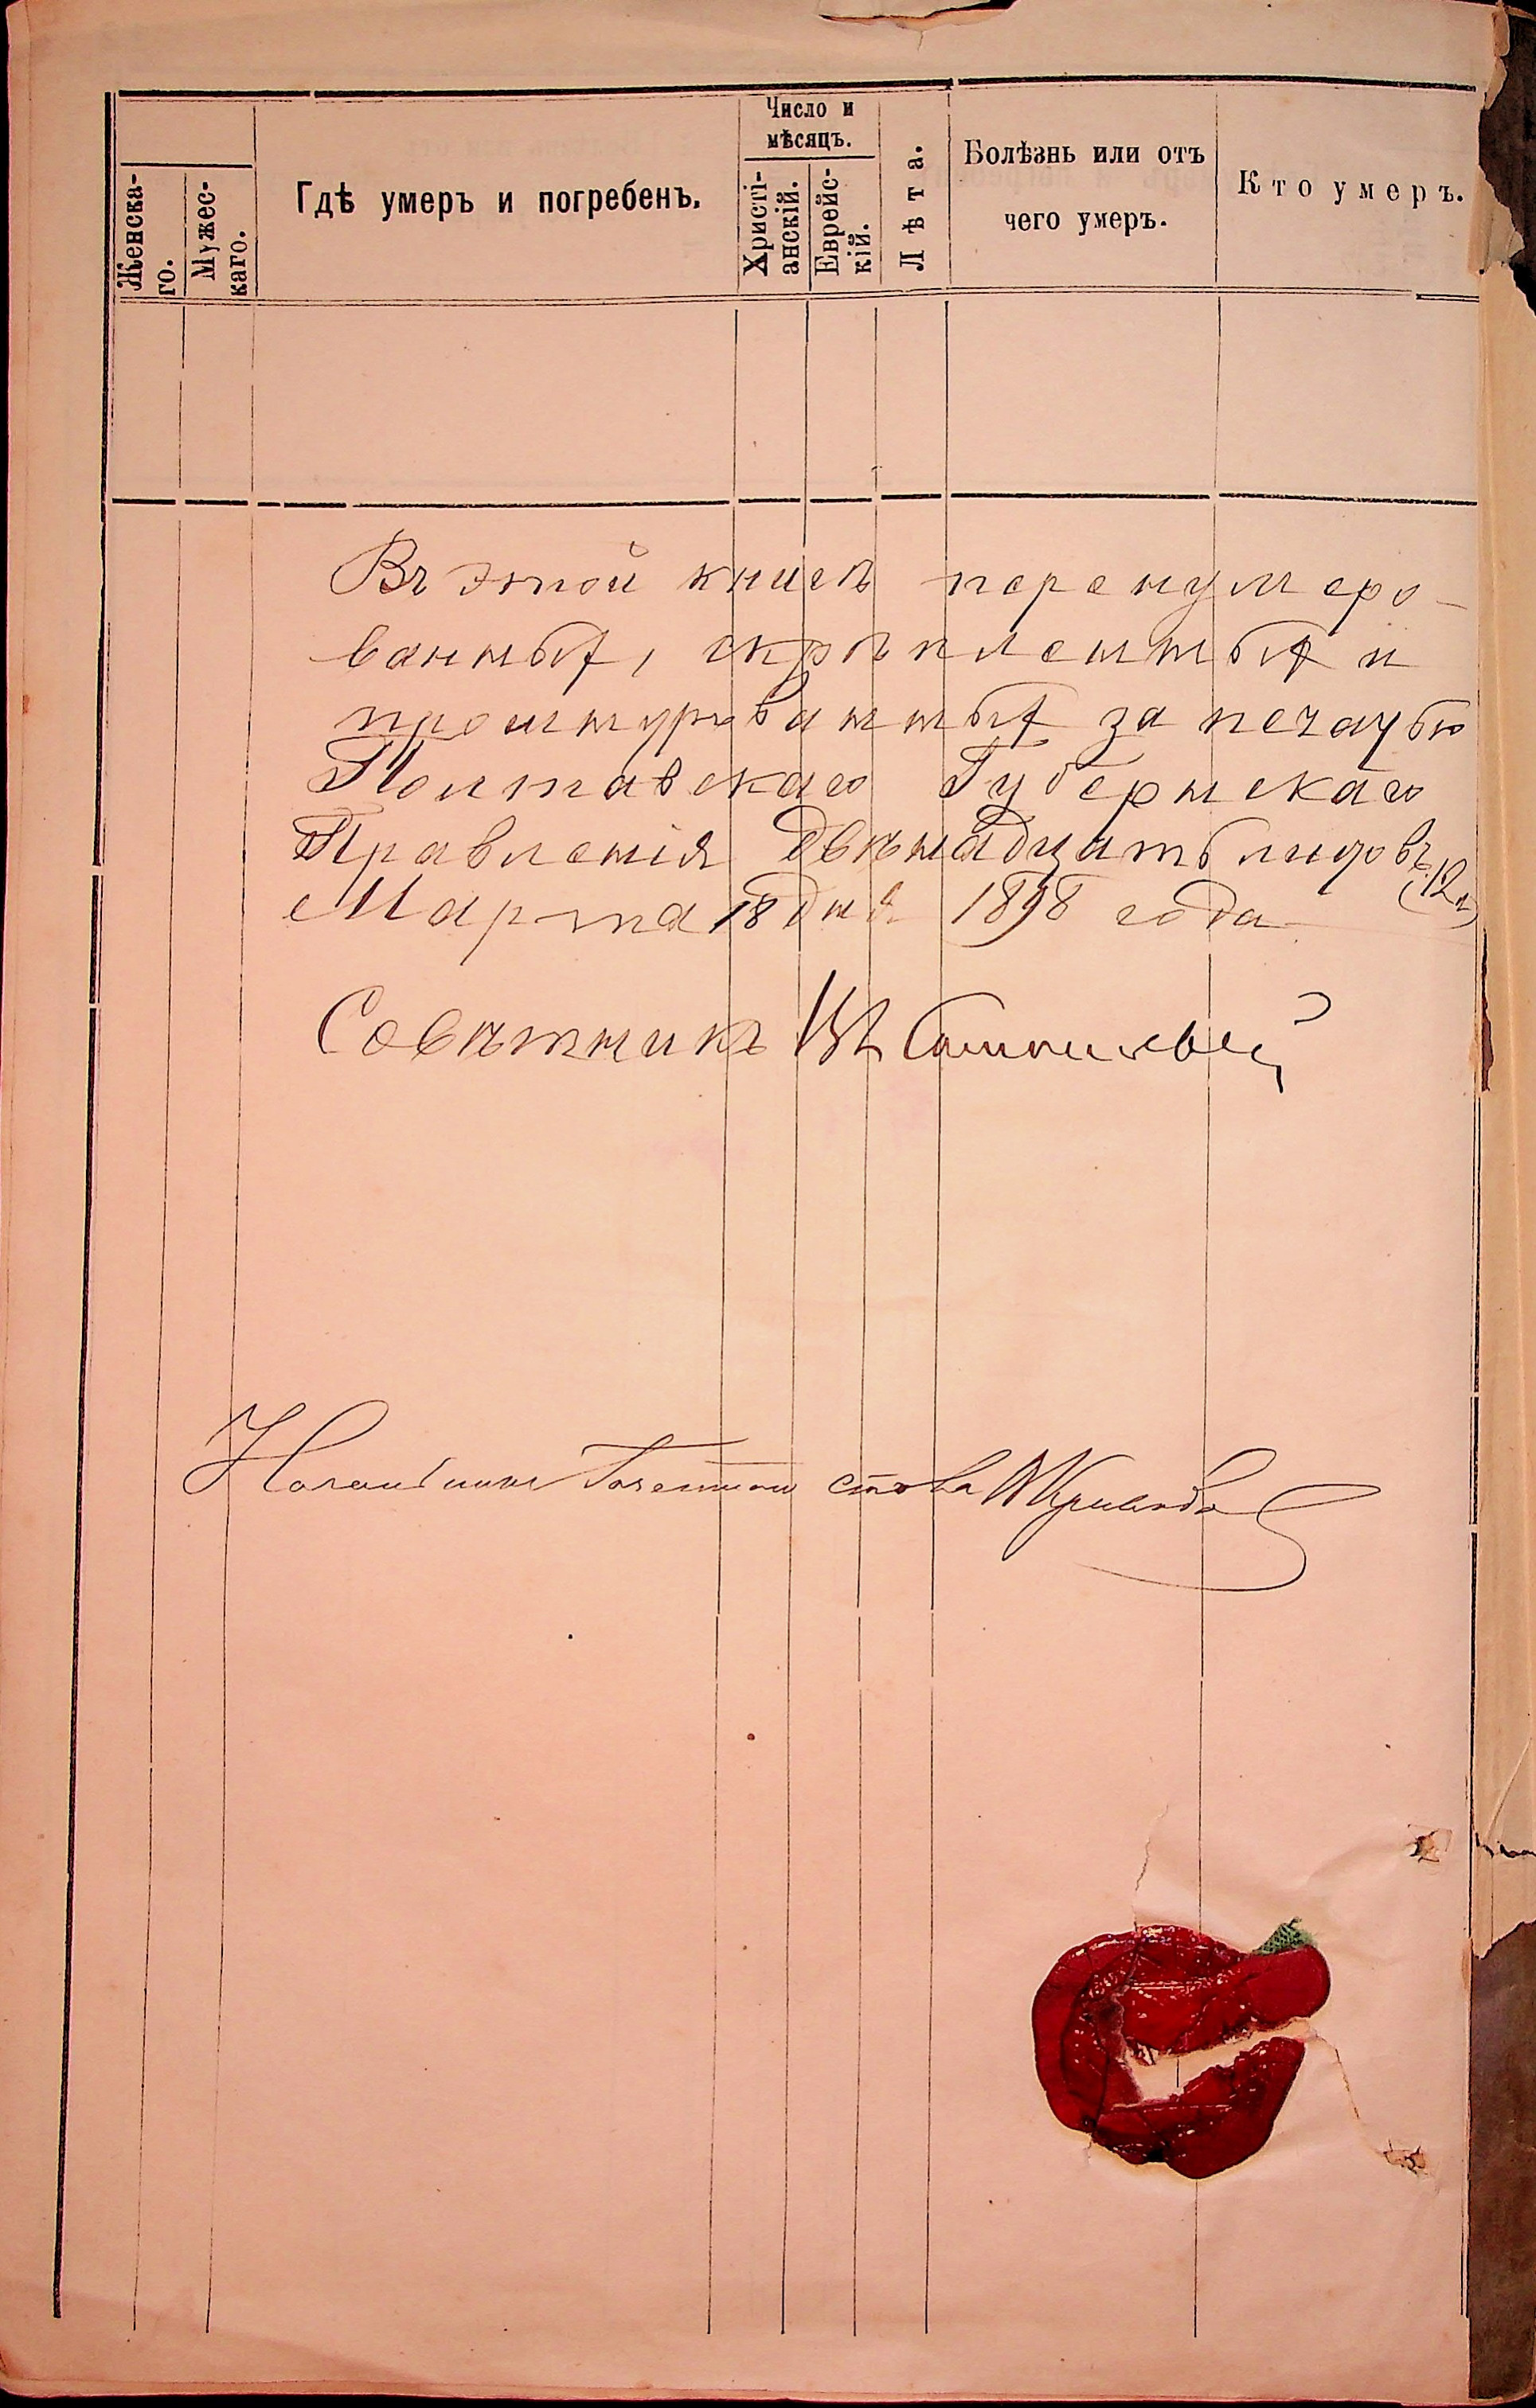 Число и
мѣсяцъ.
Женска-
го.
Мужес-
каго.
Гдѣ умеръ и погребенъ.
Христі-
анскій.
Еврейс-
кій.
Лѣта.
Болѣзнь или отъ
чего умеръ.
Кто умеръ.
Въ этой книгѣ перенумеро-
ванныхъ, скрѣпленныхъ и
прошнурованныхъ за печатью
Полтавскаго Губернскаго
Правленія двѣнадцать листовъ
(12 л)
Марта 18 дня 1898 года
Совѣтникъ